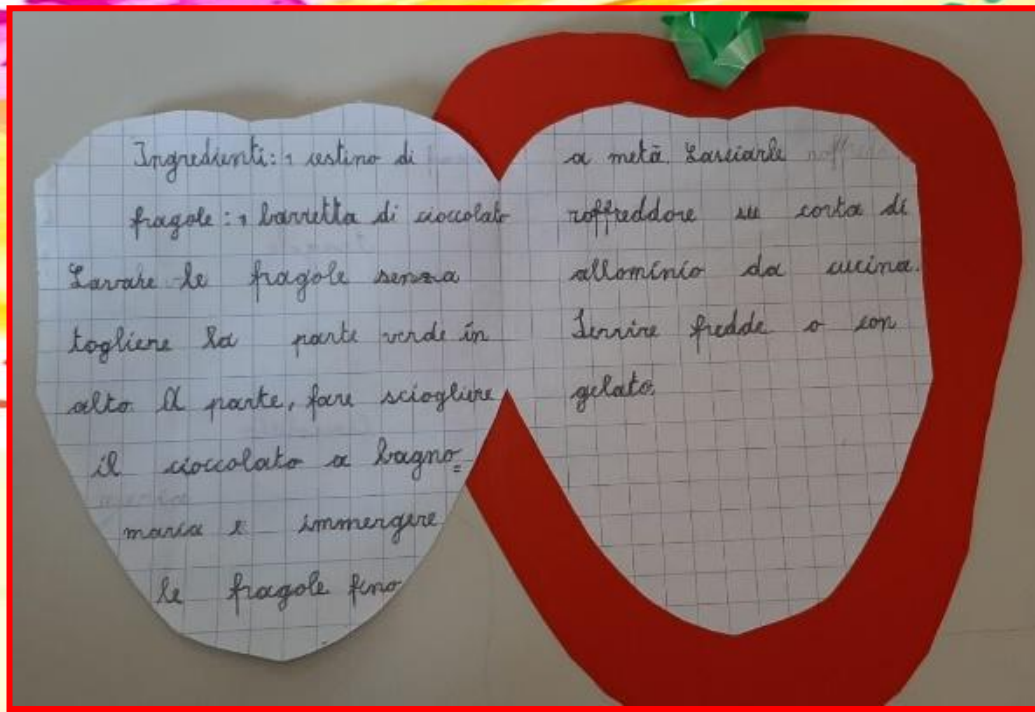 Ingredienti: 1 cestino di
fragole: 1 barretta di cioccolato
Lavare le fragole senza
togliere la parte verde in
alto A parte, fare sciogliere
il cioccolato a bagno=
maria e immergere
le fragole fino
a metà. Lasciarle
raffreddore su corta di
allominio da cucina.
Servire fredde o con
gelato.